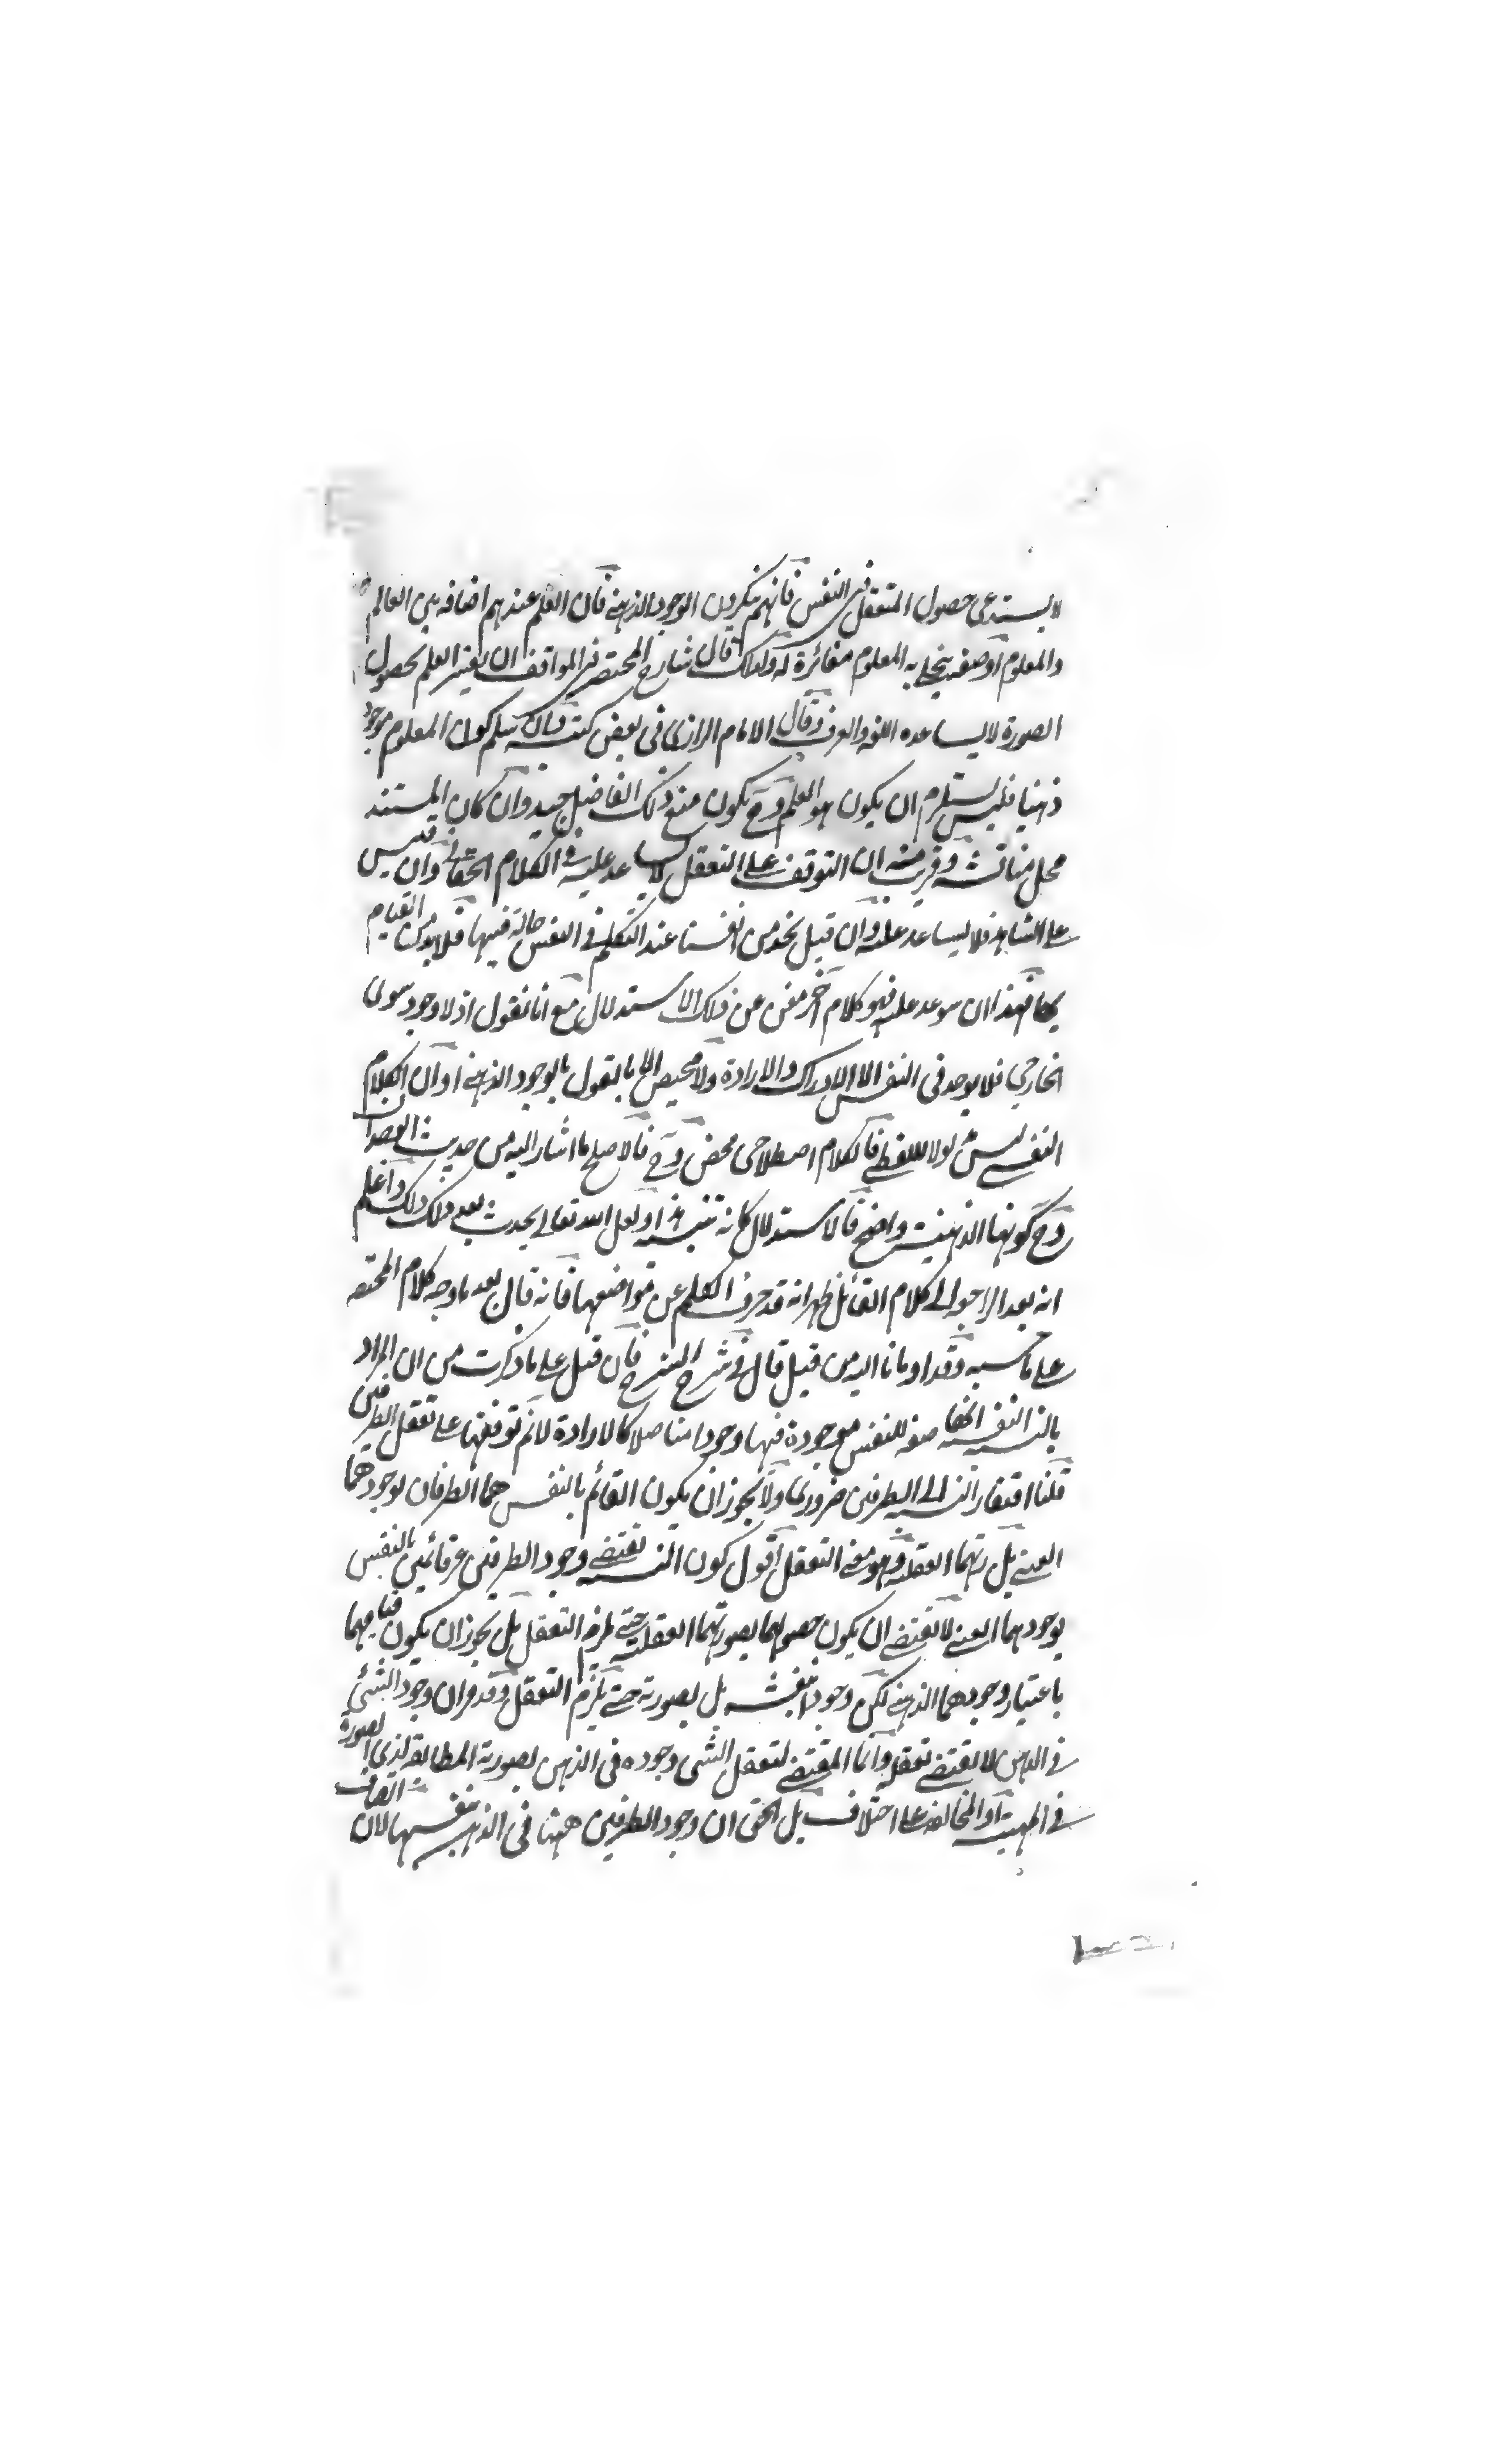 لا يستدعى حصول المتعقل فى النفس فانهم ينكرون الوجود الذهنى فان العلم عندهم اضافة بين العالم
والمعلوم او صفة ينجلى به المعلوم مغائرة له ولذلك قال شارح المختصر فى المواقف ان تفسير العلم بحصول
الصورة لا يساعده اللغة والعرف وقال الامام الرازى فى بعض كتبه وان سلم كون المعلوم موجودا
ذهنيا فليس يستلزم ان يكون هو العلم وح يكون منع ذلك الفاضل جيد وان كان المستند
محل مناقشة وقريب منه ان التوقف على التعقل لا يساعد عليه فى الكلام الحقانى وان قيس
على الشاهد فلا يساعد عليه وان قيل نجد من انفسنا عند التكلم فى النفس حالة فيها فلا بد من القيام
بها فهذا ان سوعد عليه فهو كلام آخر مغن عن ذلك الاستدلال مع انا نقول اذ لا وجود سوى
الخارجى فلا يوجد فى النفس الا الادراك والارادة ولا محيص الا بالقول بالوجود الذهنى او ان الكلام
النفسى ليس مدلولا للفظى فالكلام اصطلاحى محض وح فالاصلح ما اشار اليه من حديث القصد ان
وح كونها الذهنية واضح فالاستدلال كانه تنبيه او لعل الله تعالى يحدث بعد ذلك ذلك واعلم
انه بعد الرجوع الى كلام القائل ظهر انه قد حرف الكلم عن مواضعها فانه قال بعد ما وجه كلام المختصر
على ما حسبه وقد اومانا اليه من قبل قال فى شرح الشرح فان قيل على ما ذكرت من ان المراد
بالنسبة النفسية صفة للنفس موجودة فيها وجودا متاصلا كالارادة لا نم توقفها على تعقل الطرفين
قلنا افتقار النسبة الى الطرفين ضرورى ولا يجوز ان يكون القائم بالنفس هما الطرفان لوجودهما
العينى بل بصورتهما العقلية وهو معنى التعقل اقول كون النسبة تقتضى وجود الطرفين غير قائمين بالنفس
بوجودهما العينى لا تقتضى ان يكون حصولهما بصورتهما العقلية حتى يلزم التعقل بل يجوز ان يكون قيامهما
باعتبار وجودهما الذهنى لكن وجودا بنفسه بل بصورته حتى يلزم التعقل وقد مر ان وجود الشئ
فى الذهن لا يقتضى تعقله وانما المقتضى لتعقل الشئ وجوده فى الذهن بصورته المطابقة لذى الصورة
فى المهية او المخالفة على اختلاف بل الحق ان وجود الطرفين ههنا فى الذهن بنفسها لان اتصاف